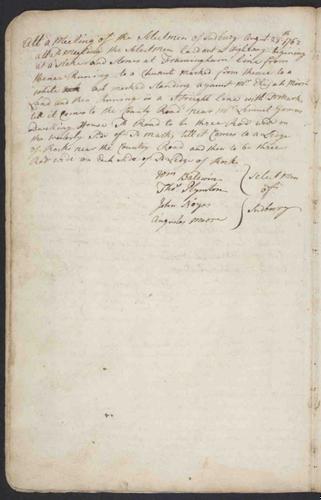 At a Meeting of the Selectmen of Sudbury Augst 25th 1762
at the meeting the Selectmen Laid out a Highway begining
at a Stake and Stones at Framingham Line from
thence Running to a Chesnutt marked from thence to a
white oak marked Standing against Mr Elijah
Land and then Running in a Straight Line
till it Comes to the Road near Mr Samuel
Dwelling House Sd Road to be three Rod wide on
the Side of Sd till it Comes to a Ledge
of Rocks near the Country Road and then to be three
Rod wide on Each Side of Sd Ledge of Rocks
Wm Baldwin
Thos Plympton
John Noyes
Augustus moore
Select men
of
Sudbury